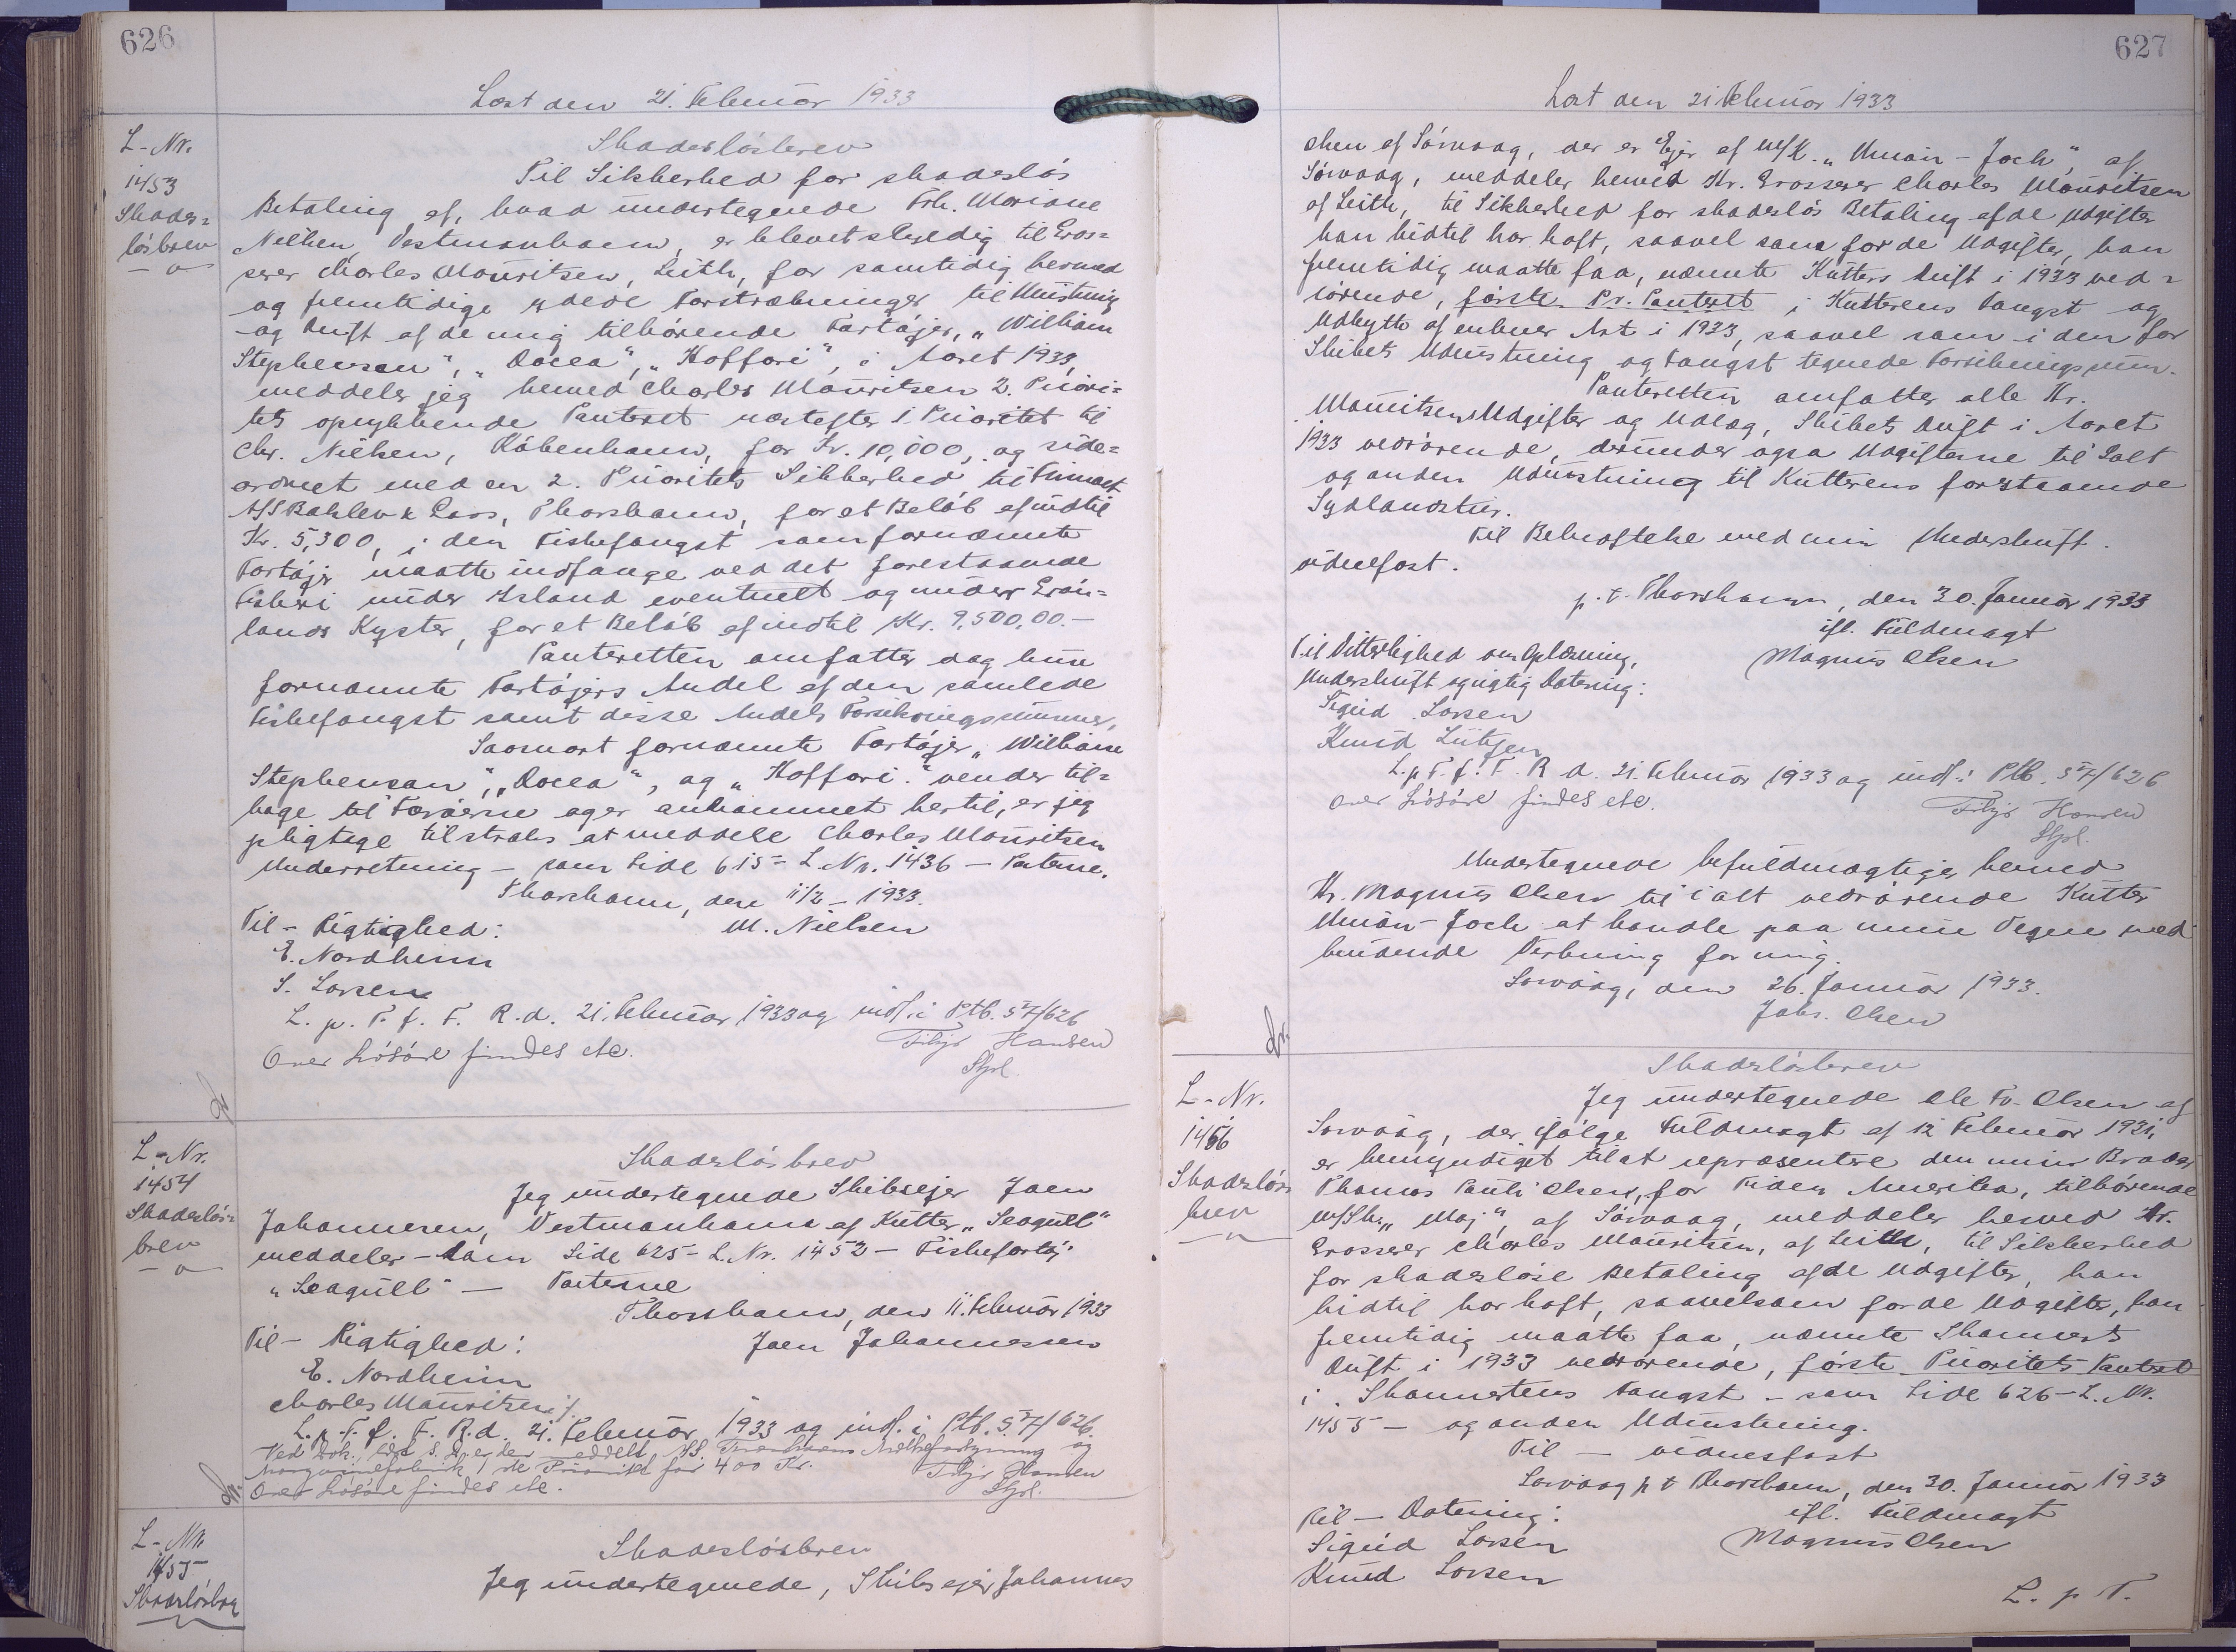 626
Læst den 21. Februar 1933
L-Nr.
1453
Skades=
løsbrev
Skadesløsbrev
Til Sikkerhed for skadesløs
Betaling af, hvad undertegnede Frk. Mariane
Nielsen, Vestmanhavn, er blevet skyldig til Gros=
serer Charles Mouritsen, Leith, for samtidig hermed
og fremtidige ydede Forstrækninger til Udrustning
og Drift af de mig tilhørende Fartøjer, „William
Stephenson", „Docea", „Koffari", i Aaret 1933,
meddeler jeg hermed Charles Mouritsen 2. Priori=
tets oprykkende Panteret næstefter 1. Prioritet til
Chr. Nielsen, København, for Kr. 10,000, og side=
ordnet med en 2. Prioritets Sikkerhed til Firmaet
A/S Bahlev & Laas, Thorshavn, for et Beløb af indtil
Kr. 5,300, i den Fiskefangst som fornævnte
Fartøjer maatte indfange ved det forestaaende
Fiskeri under Island eventuelt og under Grøn=
lands Kyster, for et Beløb af indtil Kr. 9,500,00.-
Panteretten omfatter dog kun
fornævnte Fartøjers Andel af den samlede
Fiskefangst samt disse Andels Forsikringssummer.
Saasnart fornævnte Fartøjer „William
Stephenson", „Docea", og „Koffari." vender til=
bage til Færøerne og er ankommet hertil, er jeg
pligtage til straks at meddele Charles Mouritsen
Underretning - som Side 615 - L. Nr. 1436 - Parterne.
Thorshavn, den 11/2 - 1933.
Til - Rigtighed: M. Nielsen
E. Nordheim
S. Larsen
L. p. T. f. F. R. d. 21. Februar 1933 og indf. i Ptb. S 7/626
Over Løsøre findes etc. Filijs Hansen
Stfd.
L-Nr.
1454
Skadesløs=
brev
Skadesløsbrev
Jeg undertegnede Skibsejer Joen
Johannesen, Vestmanhavn af Kutter „Seagull"
meddeler - som Side 625 - L. Nr. 1452 - Fiskefartøj
„Seagull" - Parterne
Thorshavn, den 11. Februar 1933
Til - Rigtighed: Joen Johannesen
E. Nordheim
Charles Mouritsen
L. p. T. f. F. R. d. 21. Februar 1933 og indf. i Ptb. S 7/626.
Margarinefabrik 1ste Prioritet for 400 Kr. Filijs Hansen
Over Løsøre findes etc. Stfd.
L-Nr.
1455
Skadesløsbrev
Skadesløsbrev
Jeg undertegnede, Skibsejer Johannes
627
Læst den 21 Februar 1933
Olsen af Sørvaag, der er Ejer af M/K. „Union-Jack", af
Sørvaag, meddeler herved Hr. Grosserer Charles Mouritsen
af Leith, til Sikkerhed for skadesløs Betaling af de Udgifter
han hidtil har haft, saavel som for de Udgifter, han
fremtidig maatte faa, nævnte Kutters Drift i 1933 ved=
rørende, første Pr. Panteret i Kutterens Fangst og
Udbytte af enhver Art i 1933, saavel som i den for
Skibets Udrustning og Fangst tegnede Forsikringssum.
Panteretten omfatter alle Hr.
Mouritsens Udgifter og Udlæg, Skibets Drift i Aaret
1933 vedrørende, derunder ogsa Udgifterne til Salt
og anden Udrustning til Kutterens forestaaende
Sydlandstur.
Til Bekræftelse med min Underskrift.
vidnefast.
p. t. Thorshavn, den 30. Januar 1933
ifl. Fuldmagt
Til Vitterlighed om Oplæsning, Magnus Olsen
Underskrift og rigtig Datering:
Sigurd Larsen
Knud Lütgen
L. p T. f. F. R d. 21. Februar 1933 og indf. i Ptb. S 7/626
Over Løsøre findes etc. Filijs Hansen
Stfd.
Undertegnede befuldmægtiger herved
Hr. Magnus Olsen til i alt vedrørende Kutter
Union-Jack at handle paa mine Vegne med
bindende Virkning for mig.
Sorvaag, den 26. Januar 1933.
Johs. Olsen
L-Nr.
1456
Skadesløs
brev
Skadesløsbrev
Jeg undertegnede Ole Fr. Olsen af
Sorvaag, der ifølge Fuldmagt af 12 Februar 1931,
er bemyndiget til at repræsentere den min Broder
Thomas Pauli Olsen, for Tiden Amerika, tilhørende
M/Sk. „Maj", af Sørvaag, meddeler herved Hr.
Grosserer Charles Mouritsen, af Leith, til Sikkerhed
for skadesløse Betaling af de Udgifter, han
hidtil har haft, saavelsom for de Udgifter, han
fremtidig maatte faa, nævnte Skonnerts
Drift i 1933 vedrørende, første Prioritets Panteret
i Skonnertens Fangst - som Side 626 - L. Nr.
1455 - og anden Udrustning.
Til - vidnesfast
Sorvaag p t Thorshavn, den 30. Januar 1933
Til - Datering: ifl. Fuldmagt
Sigurd Larsen Magnus Olsen
Knud Larsen
L. p T.